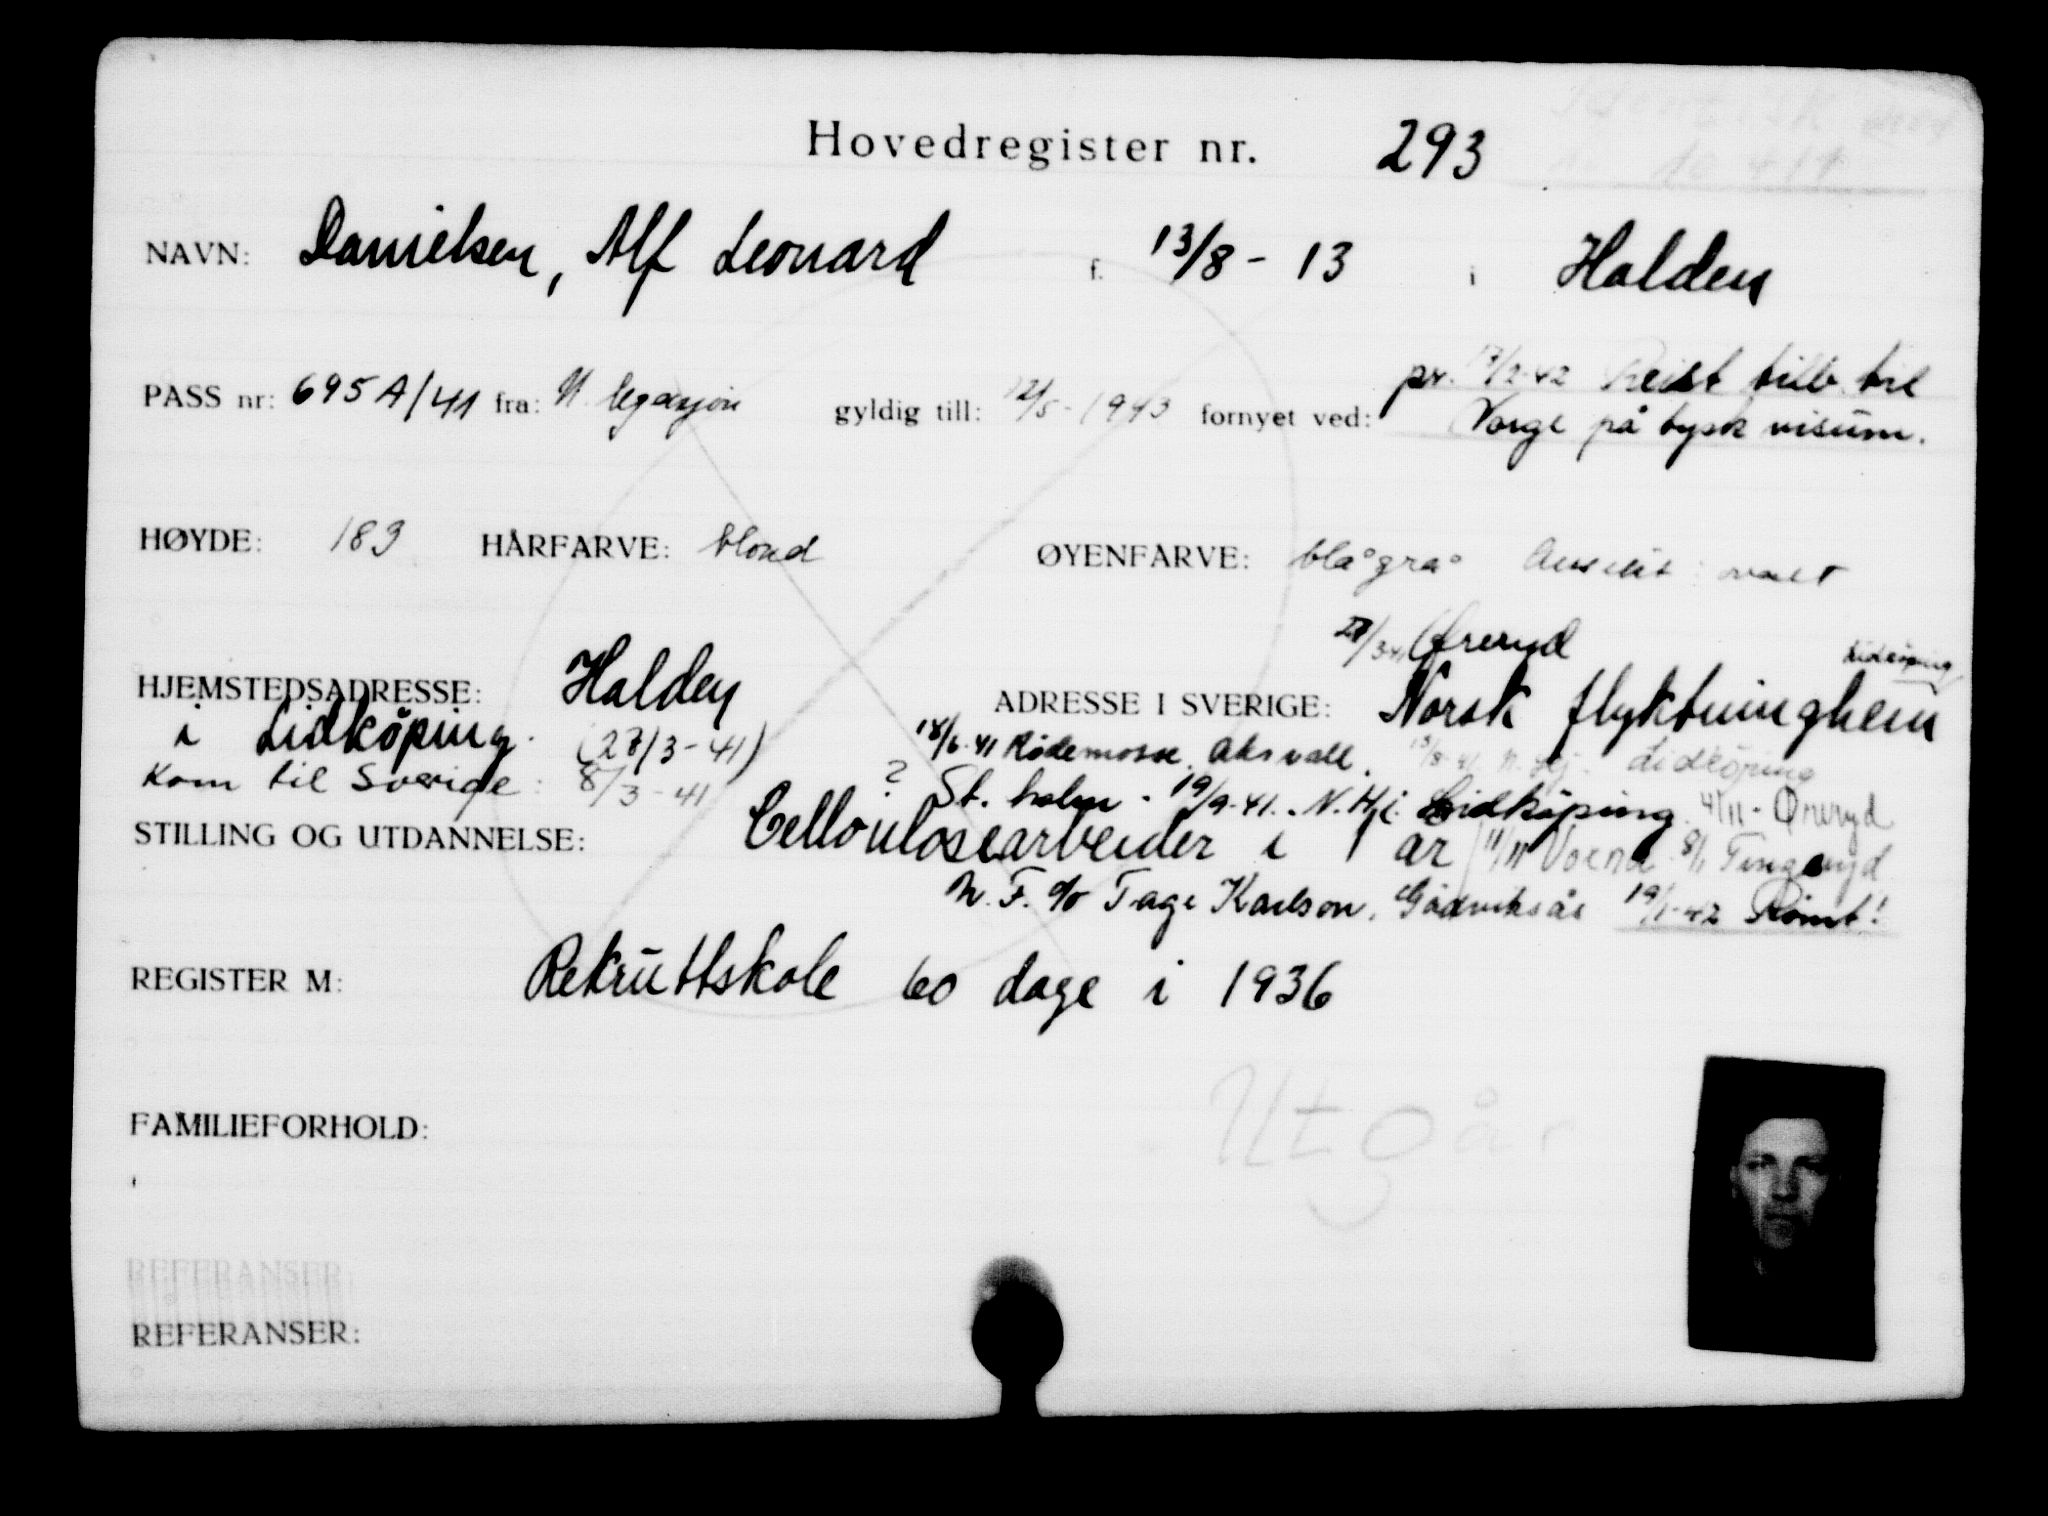 Hovedregister nr. 293
NAVN: Danielsen, Alf Leonard f. 13/8 - 13 i Halden
pr. 17/2-42 Reist tilb. til
PASS nr: 695 A/41 fra: N. legasjon gyldig till: 12/5 - 1943 fornyet ved:
Norge på tysk visum.
HØYDE: 183 HÅRFARVE: blond ØYENFARVE: blå grå Ansikt: ovalt
/3-41 Øreryd
Lidköping
HJEMSTEDSADRESSE: Halden ADRESSE I SVERIGE: Norsk flyktninghem
i Lidköping. (27/3-41) 18/6-41 Rödemosse, Axvall. N. Hj. Lidköping
Kom til Sverige: 8/3-41 ? St. holm - 19/9-41. N. Hj. i Lidköping 4/11 - Øreryd
STILLING OG UTDANNELSE: Cellouloscarbeider i 1 år 11/11 8/1 Tingsryd
N. F. c/o Tage Karlson, 19/1-42 Rømt!
REGISTER M: Rekruttskole 60 dage i 1936
FAMILIEFORHOLD:
Utgår
REFERANSER:
REFERANSER: